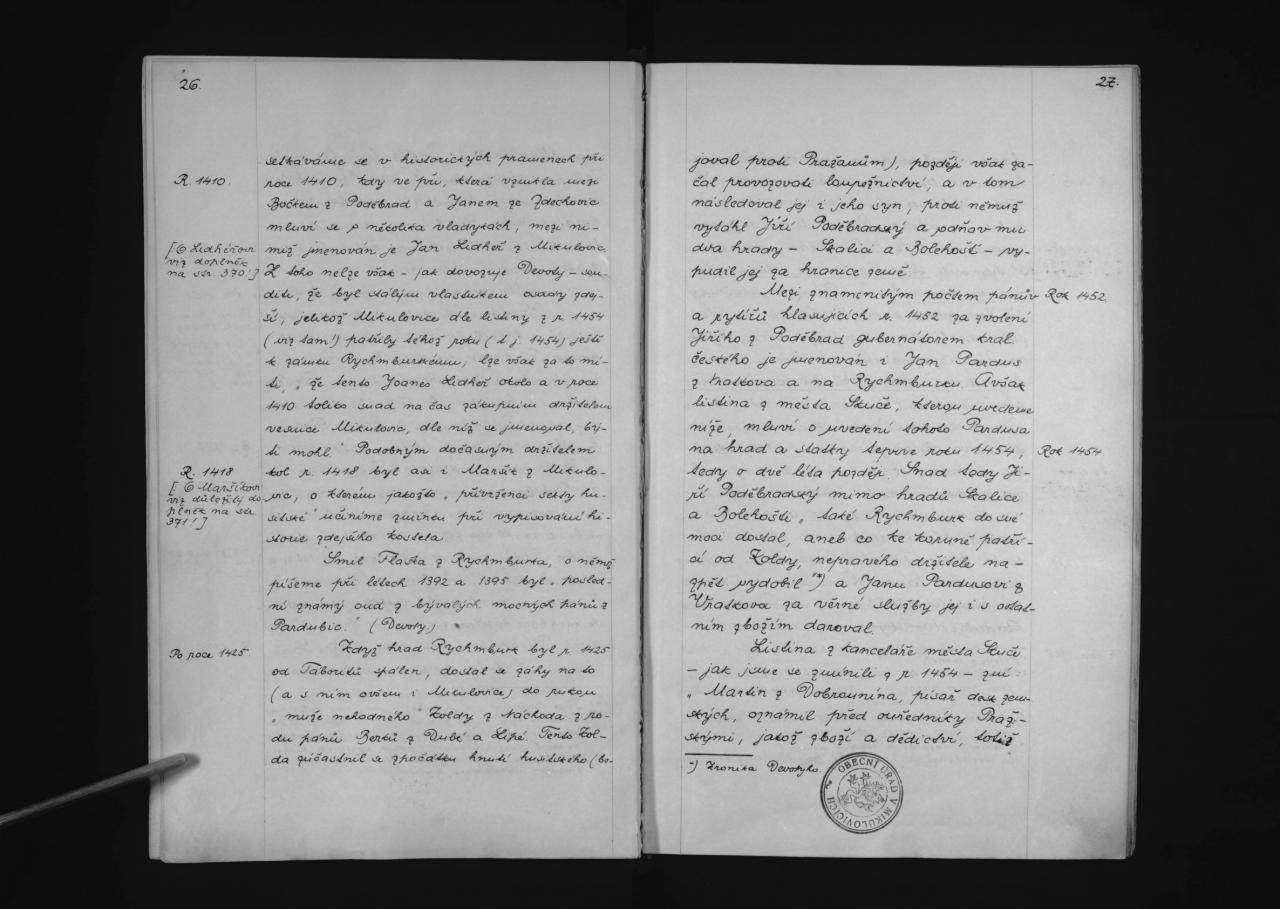 26.
setkáváme se v historických pramenech při
R. 1410.
roce 1410, kdy ve při, která vznikla mezi
Bočkem z Poděbrad a Janem ze Zdechovic
mluví se o několika vladykách, mezi ni-
miž jmenován je Jan Lidheř z Mikulovic.
[O Lidhéřovi
viz doplněk
na str. 370!]
Z toho nelze však - jak dovozuje Devoty - sou-
diti, že byl stálým vlastníkem osady zdej-
ší, jelikož Mikulovice dle listiny z r. 1454
(viz tam!) patřily téhož roku (t. j. 1454) ještě
k zámku Rychmburkému, lze však za to mí-
ti, „že tento Joanes Lidheř okolo a v roce
1410 toliko snad na čas zákupním držitelem
vesnice Mikulovic, dle níž se jmenoval, bý-
ti mohl" Podobným dočasným držitelem
R. 1418
kol r. 1418 byl asi i Maršík z Mikulo-
[: O Maršíkovi
viz důležitý do
plněk na str.
371!]
vic, o kterém jakožto „přívrženci sekty hu-
sitské" učiníme zmínku při vypisování hi-
storie zdejšího kostela.
Smil Flaška z Rychmburka, o němž
píšeme při létech 1392 a 1395 byl „posled-
ní známý oud z bývalých mocných pánů z
Pardubic." (Devoty.)
Po roce 1425.
Když hrad Rychmburk byl r. 1425
od Táboritů spálen, dostal se záhy na to
(a s ním ovšem i Mikulovice) do rukou
„muže nehodného" Koldy z Náchoda z ro-
du pánů Berků z Dubé a Lipé. Tento Kol-
da zúčastnil se zpočátku hnutí husitského (bo-
27.
joval proti Pražanům), později však za-
čal provozovati loupežnictví, a v tom
následoval jej i jeho syn, proti němuž
vytáhl Jiří Poděbradský a odňav mu
dva hrady - Skalici a Bolehošť - vy-
pudil jej za hranice země.
Mezi znamenitým počtem pánův
Rok 1452.
a rytířů hlasujících r. 1452 za zvolení
Jiřího z Poděbrad gubernátorem král.
českého je jmenován i Jan Pardus
z Vratkova a na Rychmburku. Avšak
listina z města Skuče, kterou uvedeme
níže, mluví o uvedení tohoto Pardusa
na hrad a statky teprve roku 1454,
Rok 1454.
tedy o dvě léta později. Snad tedy Ji-
ří Poděbradský mimo hradů Skalice
a Bolehoště „také Rychmburk do své
moci dostal, aneb co ke koruně patří-
cí od Koldy, nepravého držitele na-
zpět vydobil"*) a Janu Pardusovi z
Vratkova za věrné služby jej i s ostat-
ním zbožím daroval.
Listina z kanceláře města Skuče
- jak jsme se zmínili z r. 1454 - zní:
„Martin z Dobrounína, písař desk zem-
ských, oznámil před ouředníky Praž-
skými, jakož zboží a dědictví, totiž
*) Kronika Devotyho.
OBECNÍ ÚŘAD V MIKULOVICÍCH